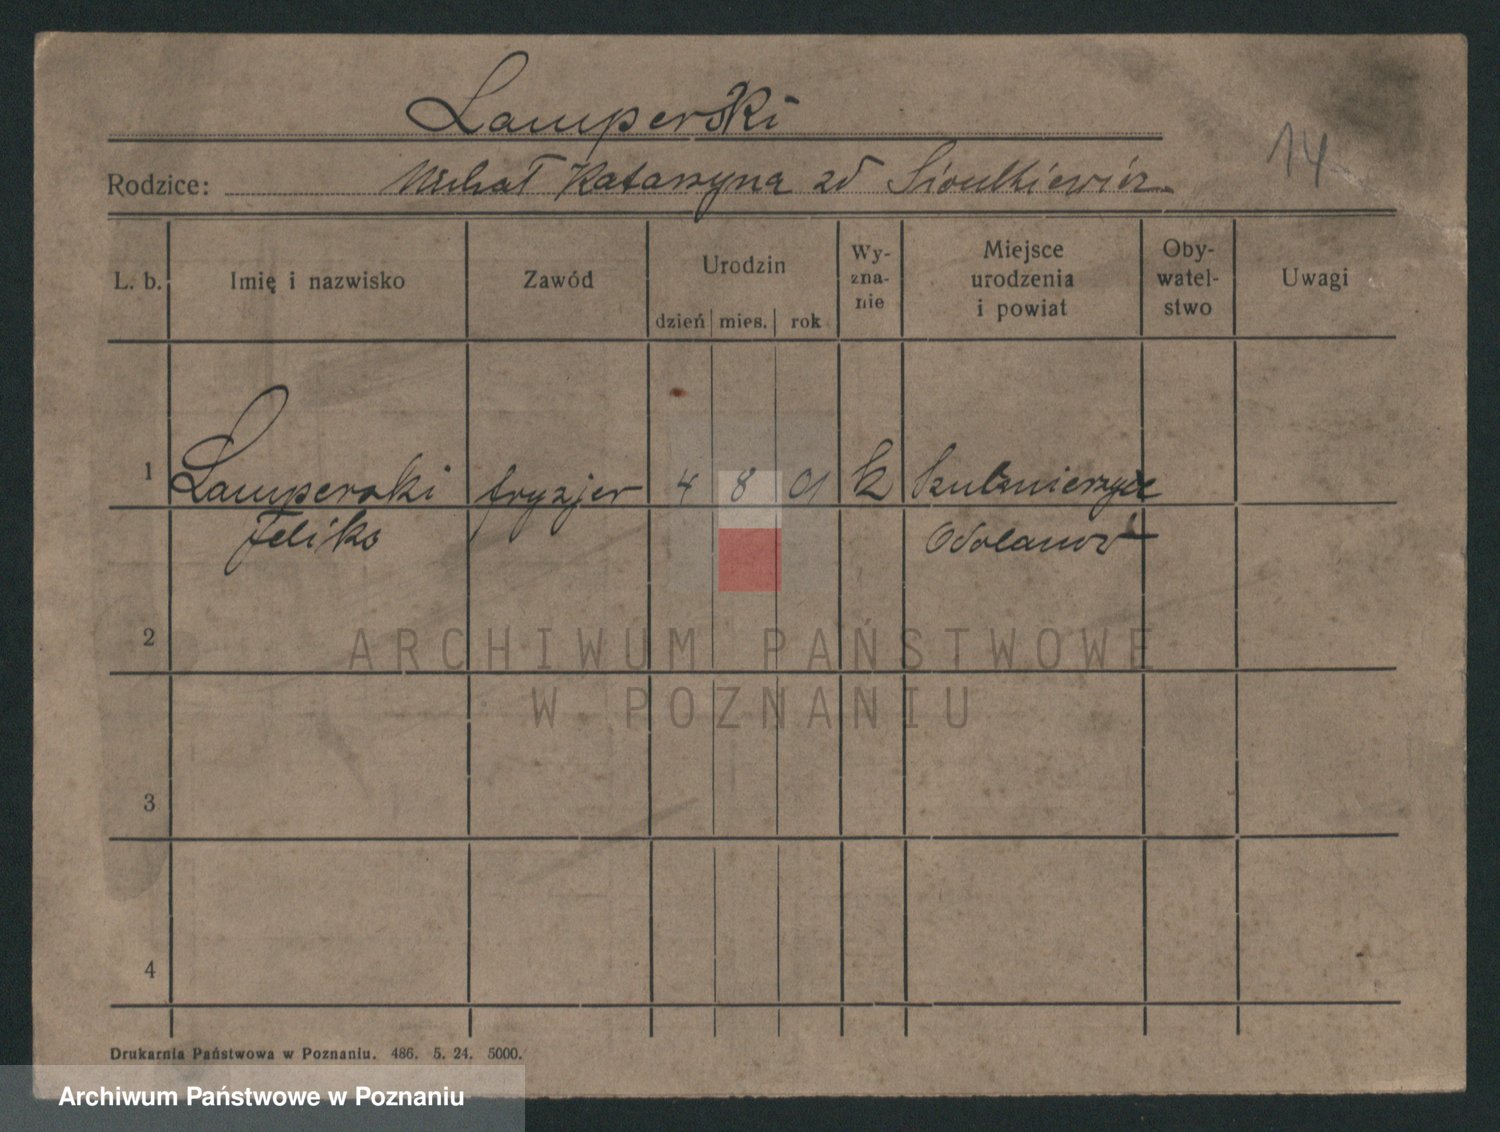 Lamperski
14
Rodzice: Michał Katarzyna zd
L. b. Imię i nazwisko Zawód Urodzin Wy-zna-nie Miejsce urodzenia i powiat Oby-watel-stwo Uwagi
dzień mies. rok
1 Lamperski fryzjer 4 8 01 k Sulmierzyce
Feliks Odolanów
2
3
4
Drukarnia Państwowa w Poznaniu. 486. 5. 24. 5000.
ARCHIWUM PAŃSTWOWE
W POZNANIU
Archiwum Państwowe w Poznaniu